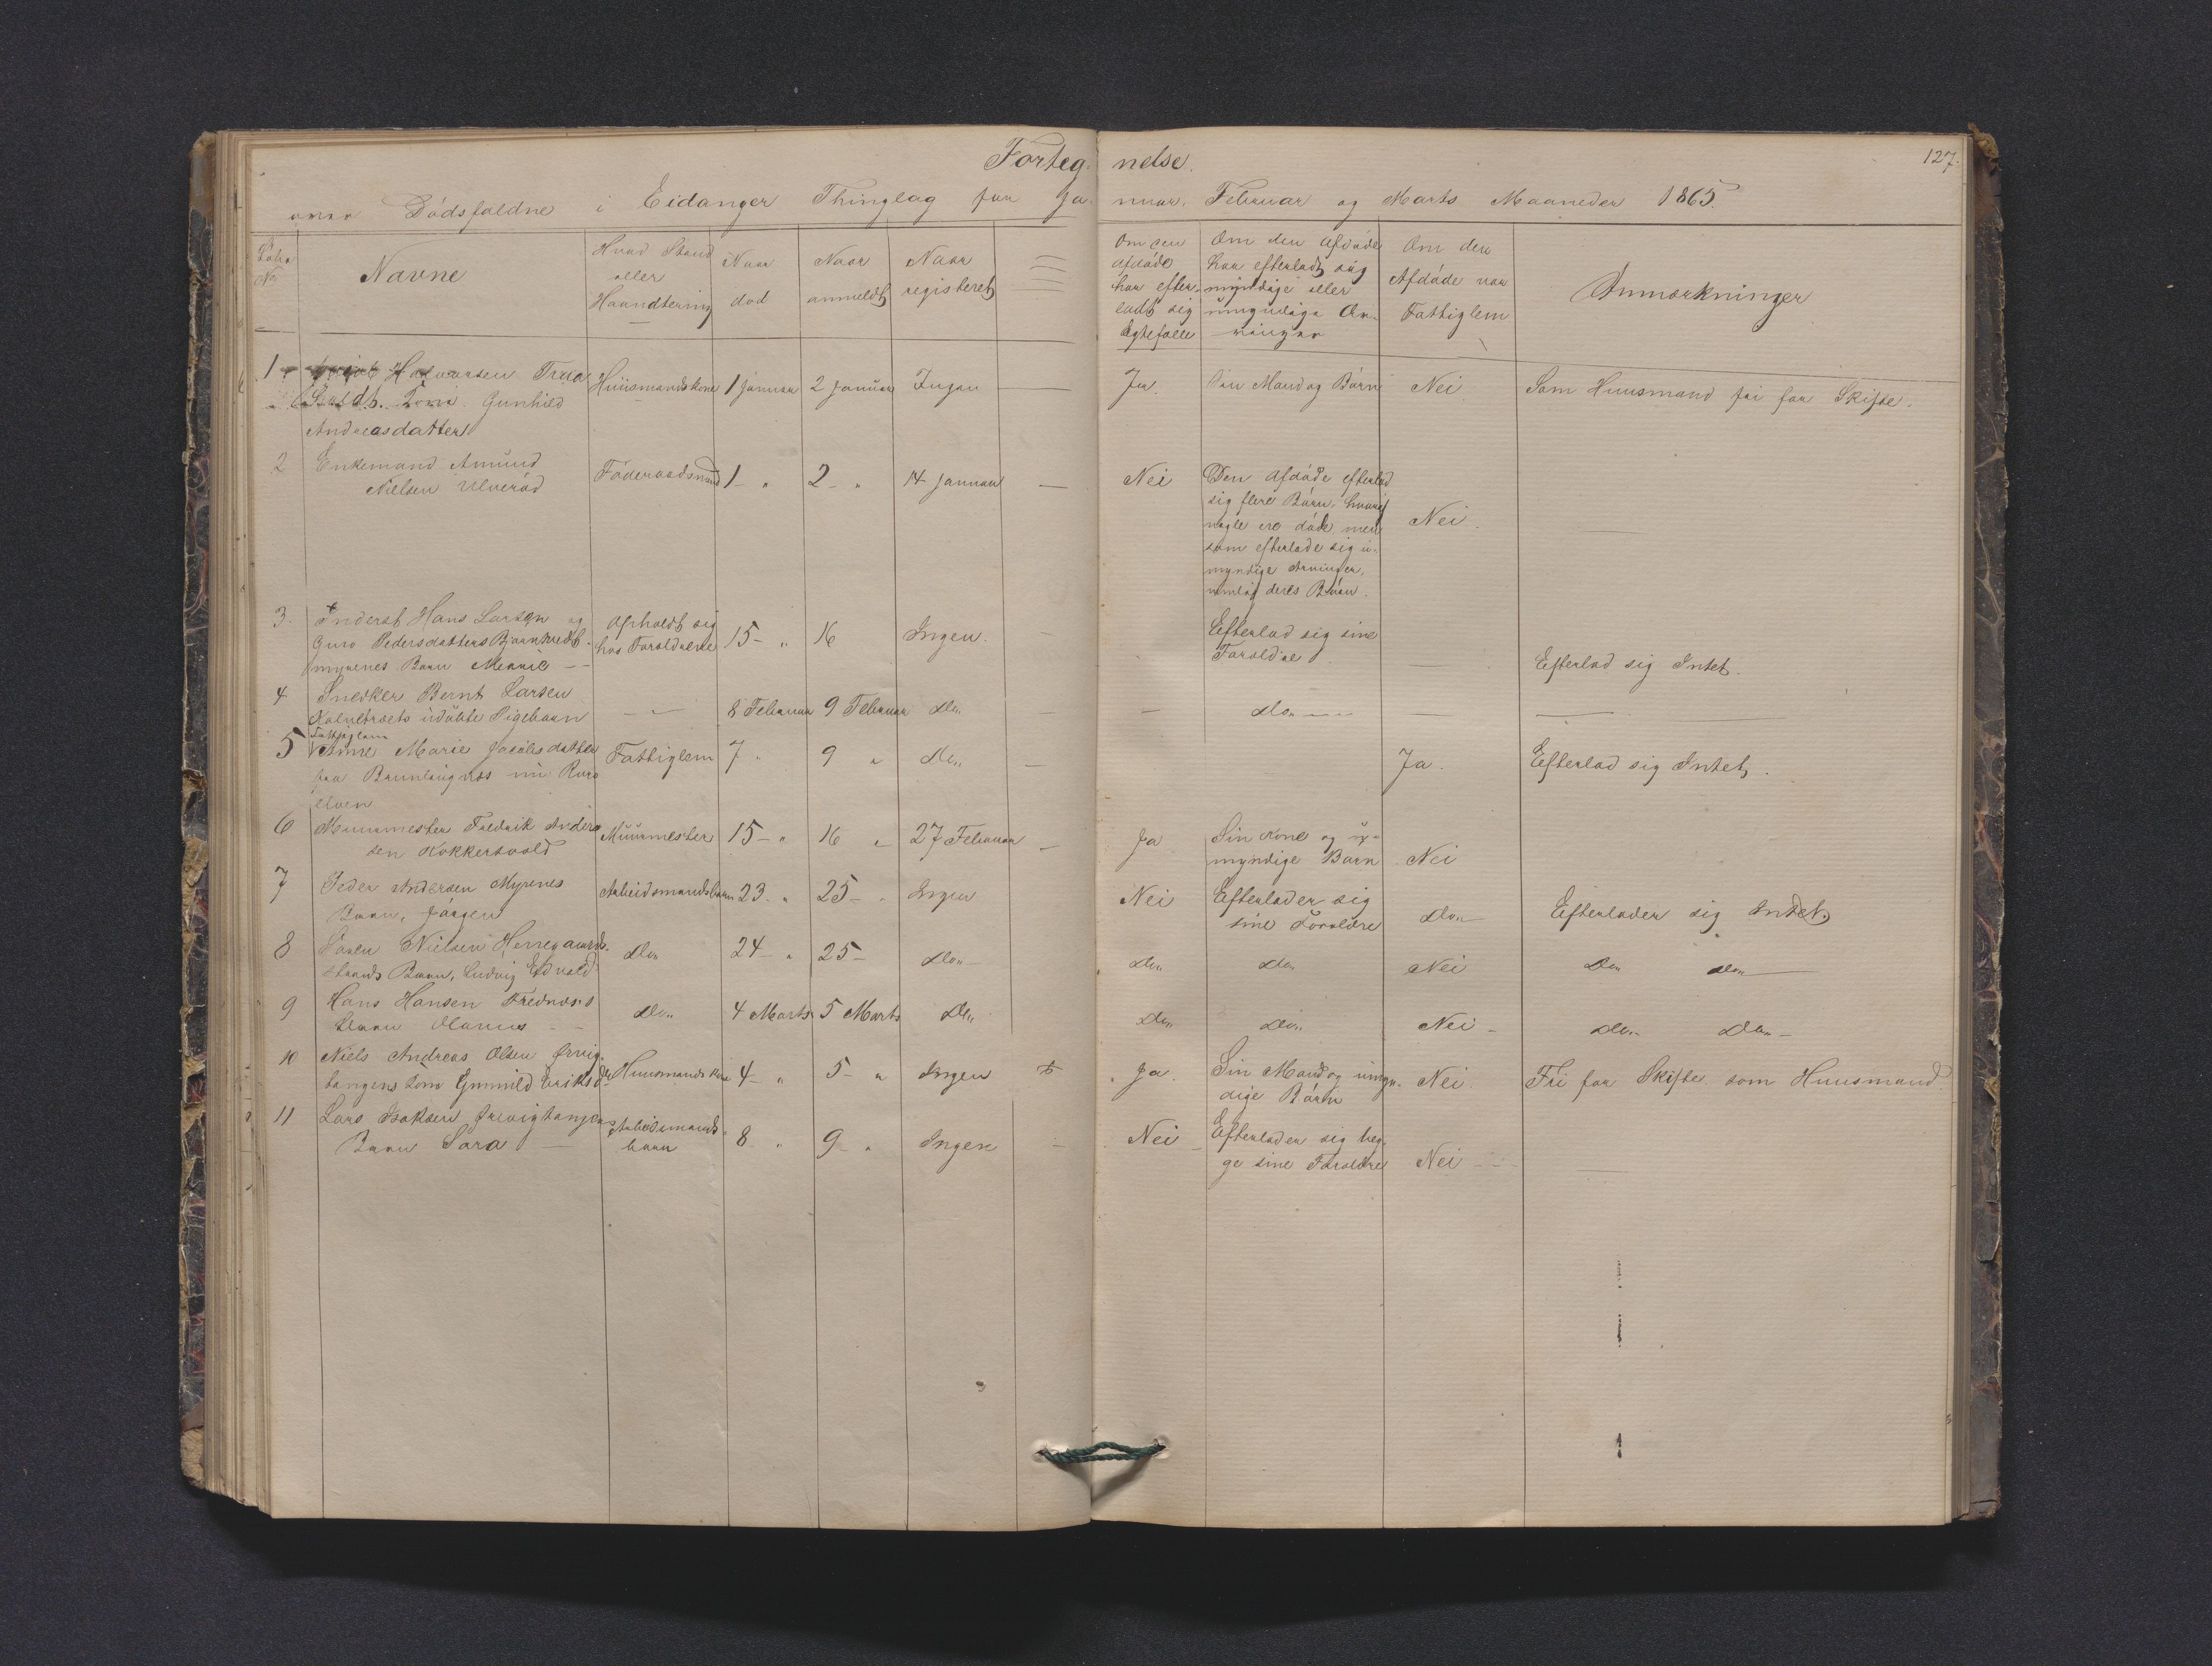 Forteg- nelse.
127.
over Dödsfaldne i Eidanger Thinglag for Ja- nuar, Februar og Marts Maaneder 1865.
Löbe No
Navne
Hvad Stand eller Haandtering
Naar död
Naar anmeldt
Naar registeret
Om den Afdöde har efterladt sig Ægtefælle
Om den Afdöde har efterladt sig myndige eller umyndige Arvinger
Om den Afdöde var Fattiglem
Anmærkninger
1 Halvorsen
Kone Gunhild Huusmandskone 1 Januar 2 Januar Ingen — Ja. Sin Mand og Börn Nei Som Huusmand fri for Skifte.
Andreasdatter
2 Enkemand Amund Föderaadsmand 1 - " 2 - " 14 Januar — Nei Den Afdöde efterlod
Nielsen Ulveröd sig flere Börn, hvoraf
nogle ere döde men Nei.
som efterlode sig u-
myndige Arvinger,
nemlig deres Börn.
3. Inderst Hans Larsen og Opholdt sig 15 - " 16 Ingen. Efterlod sig sine
Guro Pedersdatters hos Forældrene Forældre — Efterlod sig Intet.
myrenes Barn
4 Snedker Bernt Larsen
udöbte Pigebarn — 8 Februar 9 Februar do. — do. — —
Fattiglem
5 Anne Marie Jacobsdatter Fattiglem 7 " 9 " do. — Ja. Efterlod sig Intet.
fra
elven
6 Muurmester Fredrik Ander- Muurmester 15 - " 16 " 27 Februar — Ja Sin Kone og u-
sen Kokkersvold myndige Börn Nei
7 Peder Andersen Myrenes Arbeidsmandsbarn 23 - " 25 - " Ingen Nei Efterlader sig
Barn, Jörgen sine Forældre do. Efterlader sig Intet.
8 Sören Nielsen Herregaards- do. 24 - " 25 - do. do. do. Nei do. do.
strands Barn, Ludvig Edvald
9 Hans Hansen Frednæs's do. 4 Marts 5 Marts do. do. do. Nei - do. do.
Barn
10 Niels Andreas Olsen Örvig- Huusmands Kone 4 - " 5 - " Ingen Ja. Sin Mand og umyn- Nei. Fri for Skifte som Huusmand
tangens Kone Gunnild Eriksd. dige Börn
11 Lars Isaksen Örvigtangens Arbeidsmands- 8 " 9 - " Ingen — Nei Efterlader sig beg-
Barn Sara — barn ge sine Forældre Nei —